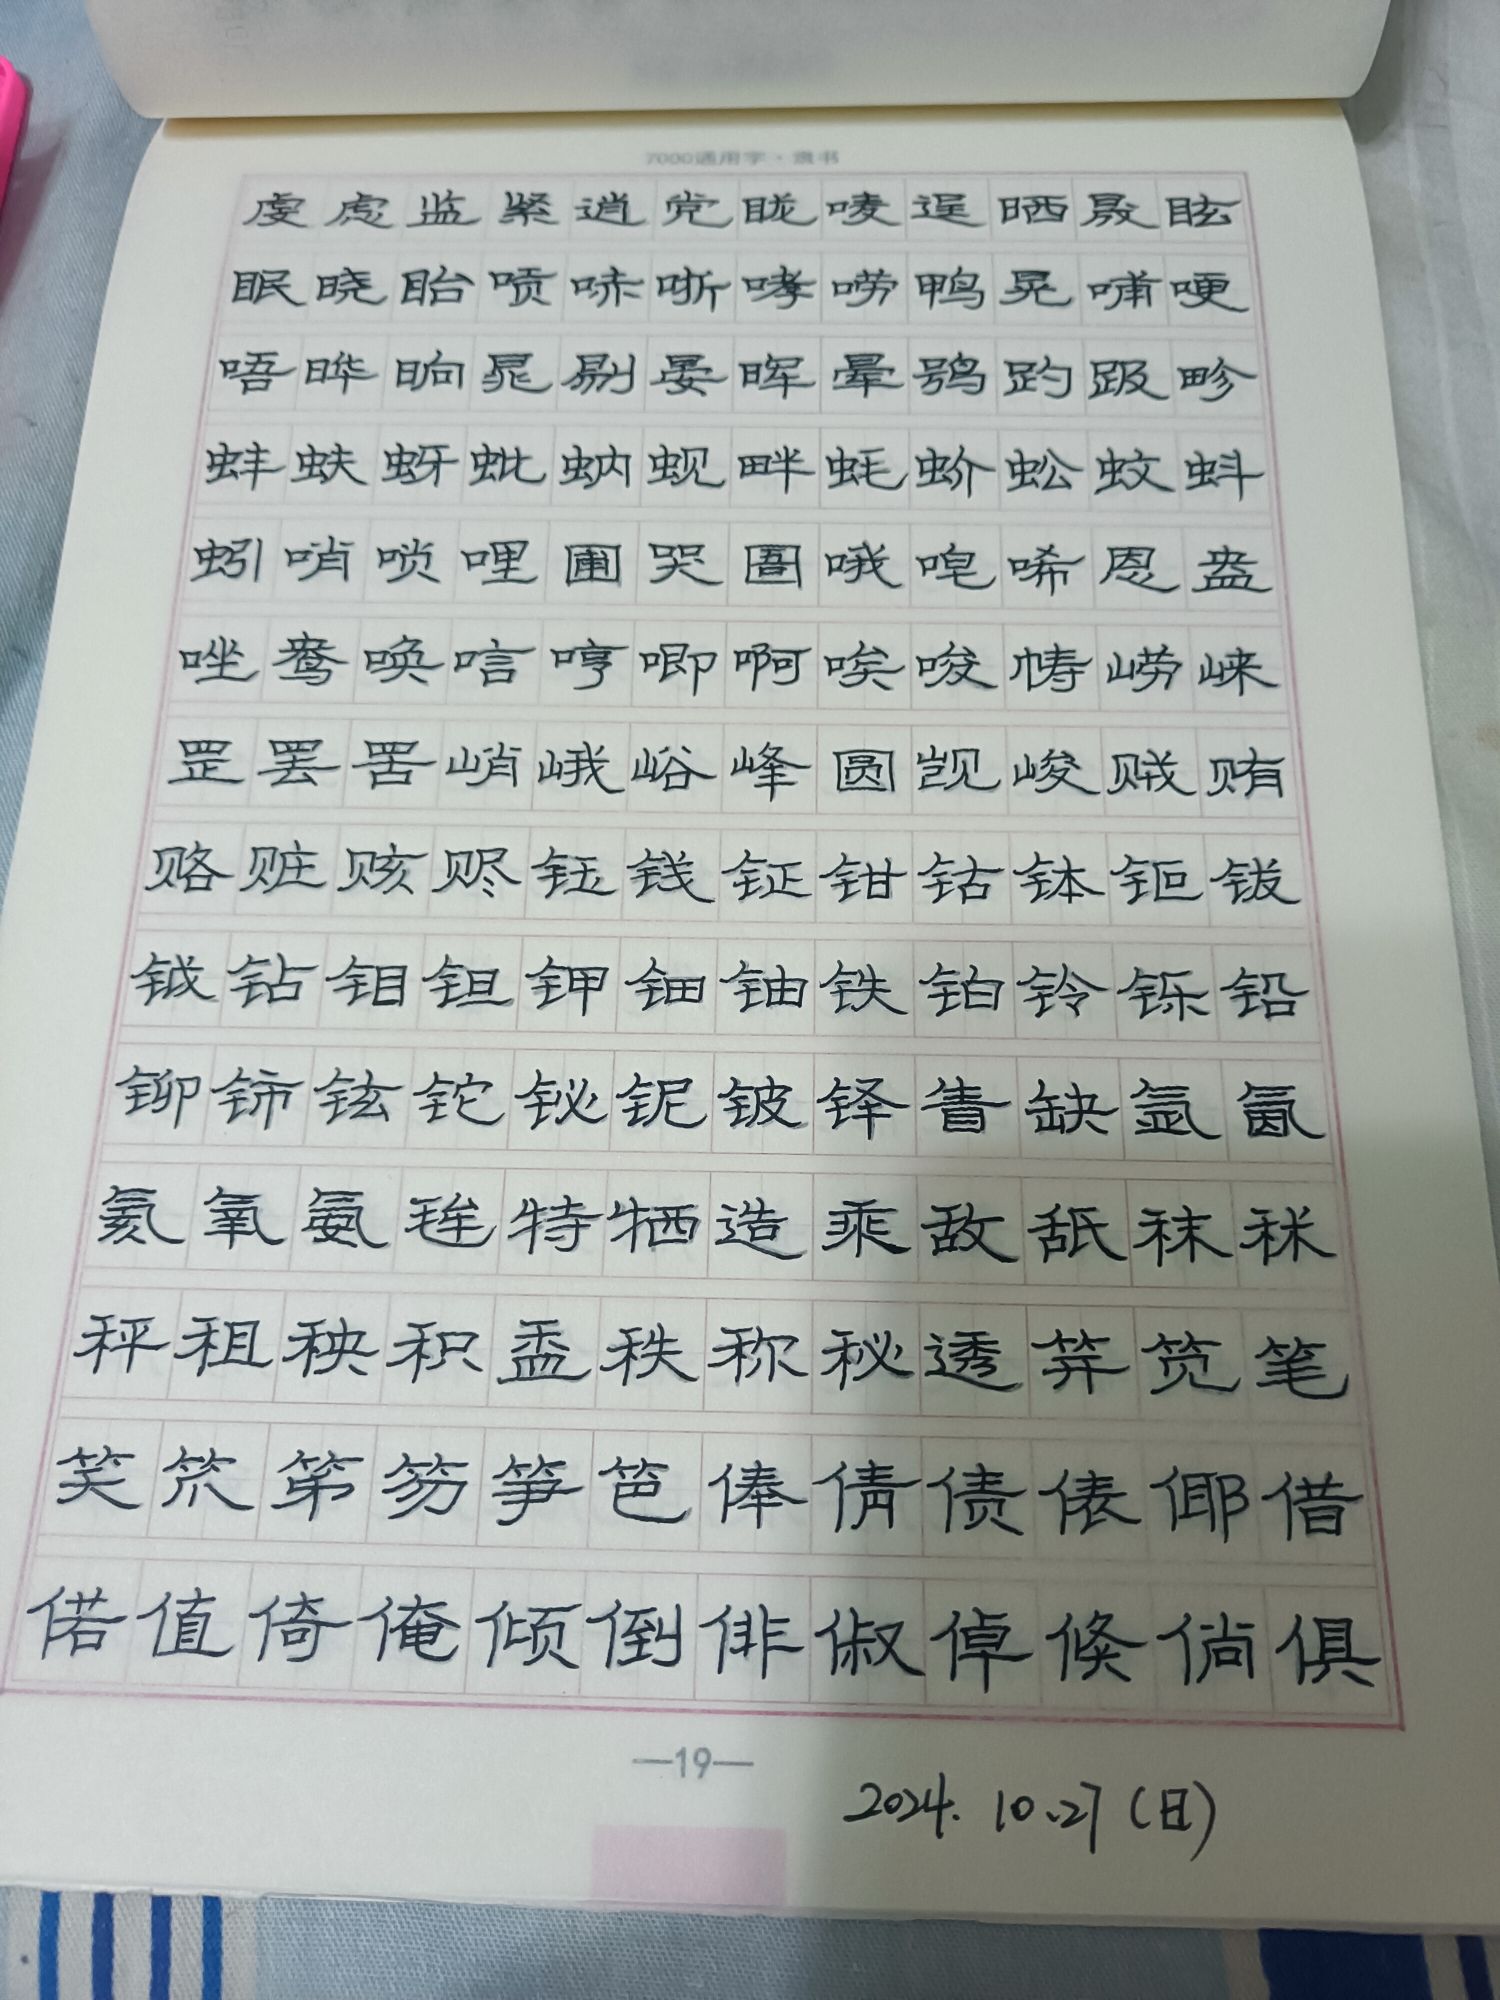 7000通用字·隶书
虔虑监紧逍党眬唛逞晒晟眩
眠晓眙喷哧哳哮唠鸭晃哺哽
唔晔晌晁剔晏晖晕鸮趵趿畛
蚌蚨蚜蚍蚋蚬畔蚝蚧蚣蚊蚪
蚓哨唢哩圃哭圄哦唣唏恩盎
唑鸯唤唁哼唧啊唉唆帱崂崃
罡罢罟峭峨峪峰圆觊峻贼贿
赂赃赅赆钰钱钲钳钴钵钷钹
钺钻钼钽钾钿铀铁铂铃铄铅
铆铈铉铊铋铌铍铎眚缺氩氤
氦氧氨毪特牺造乘敌舐秣秫
秤租秧积盉秩称秘透笄笕笔
笑笊笫笏笋笆俸倩债俵倻借
偌值倚俺倾倒俳俶倬倏倘俱
—19—
2024.10.27(日)